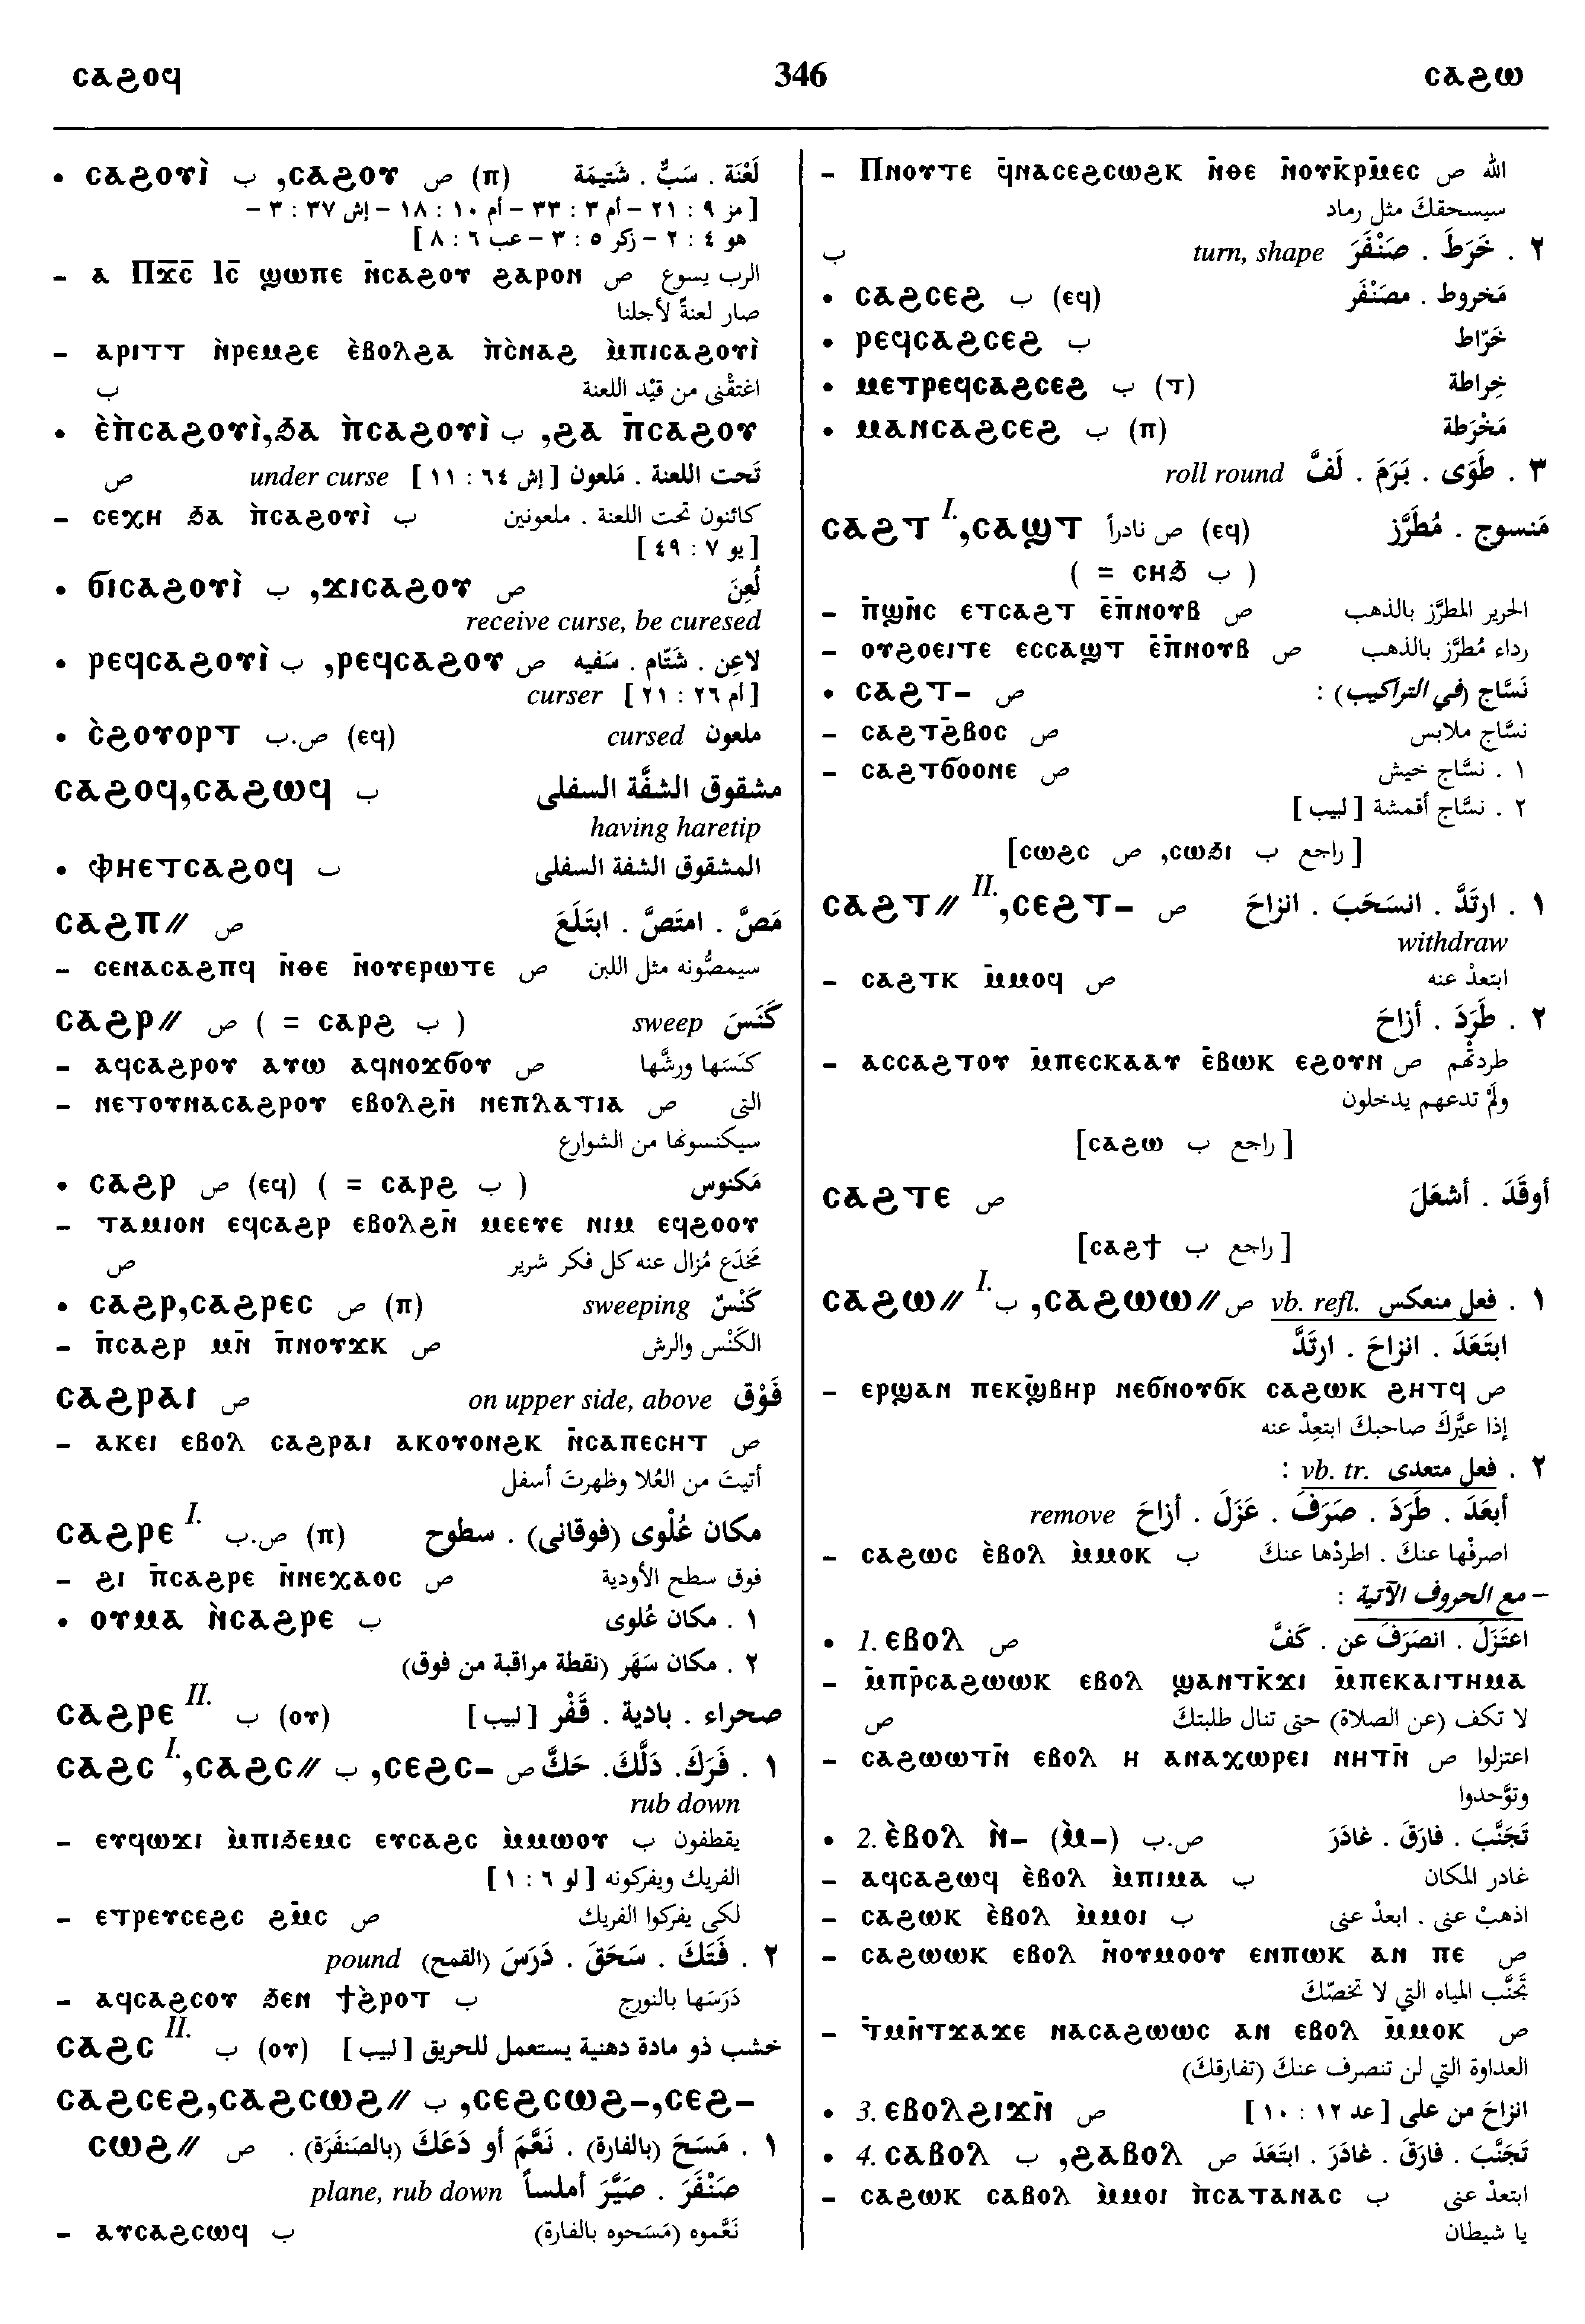 ⲥⲁϩⲟϥ 346 ⲥⲁϩⲱ
• ⲥⲁϩⲟⲩⲓ̀ ب ,ⲥⲁϩⲟⲩ ص (ⲡ) لَعْنَة . سَبٌّ . شَتيمَة
[ مز ٩ : ٢١ – أم ٣ : ٣٣ – أم ١٠ : ١٨ – إش ٣٧ : ٣ –
هو ٤ : ٢ – زكر ٥ : ٣ – عب ٦ : ٨ ]
– ⲁ Ⲡϫ̅ⲥ̅ Ⲓⲥ̅ ϣⲱⲡⲉ ⲛ̄ⲥⲁϩⲟⲩ ϩⲁⲣⲟⲛ ص الرب يسوع
صار لعنةً لأجلنا
– ⲁⲣⲓⲧⲧ ⲛ̀ⲣⲉⲙϩⲉ ⲉ̀ⲃⲟⲗϩⲁ ⲡ̀ⲥ̀ⲛⲁϩ ⲙ̀ⲡⲓⲥⲁϩⲟⲩⲓ̀
ب اعْتِقْنى من قيْد اللعنة
• ⲉ̀ⲡ̀ⲥⲁϩⲟⲩⲓ̀,ϧⲁ ⲡ̀ⲥⲁϩⲟⲩⲓ̀ ب ,ϩⲁ ⲡ̄ⲥⲁϩⲟⲩ
ص under curse [ إش ٦٤ : ١١ ] تَحت اللعنة . مَلعون
– ⲥⲉⲭⲏ ϧⲁ ⲡ̀ⲥⲁϩⲟⲩⲓ̀ ب كائنون تحت اللعنة . ملعونين
[ يو ٧ : ٤٩ ]
• ϭⲓⲥⲁϩⲟⲩⲓ̀ ب ,ϫⲓⲥⲁϩⲟⲩ ص لُعِنَ
receive curse, be curesed
• ⲣⲉϥⲥⲁϩⲟⲩⲓ̀ ب ,ⲣⲉϥⲥⲁϩⲟⲩ ص لاعِن . شَتّام . سَفيه
curser [ أم ٢٦ : ٢١ ]
• ⲥ̀ϩⲟⲩⲟⲣⲧ ص.ب (ⲉϥ) cursed ملعون
ⲥⲁϩⲟϥ,ⲥⲁϩⲱϥ ب مشقوق الشفَّة السفلى
having haretip
• ⲫⲏⲉⲧⲥⲁϩⲟϥ ب المشقوق الشفة السفلى
ⲥⲁϩⲡ// ص مَصَّ . امتَصَّ . ابتَلَعَ
– ⲥⲉⲛⲁⲥⲁϩⲡϥ ⲛ̄ⲑⲉ ⲛ̄ⲟⲩⲉⲣⲱⲧⲉ ص سيمصُّونه مثل اللبن
ⲥⲁϩⲣ// ص ( = ⲥⲁⲣϩ ب ) sweep كَنَسَ
– ⲁϥⲥⲁϩⲣⲟⲩ ⲁⲩⲱ ⲁϥⲛⲟϫϭⲟⲩ ص كنَسَها ورشَّها
– ⲛⲉⲧⲟⲩⲛⲁⲥⲁϩⲣⲟⲩ ⲉⲃⲟⲗϩⲛ̄ ⲛⲉⲡⲗⲁⲧⲓⲁ ص التى
سيكنسونها من الشوارع
• ⲥⲁϩⲣ ص (ⲉϥ) ( = ⲥⲁⲣϩ ب ) مَكنوس
– ⲧⲁⲙⲓⲟⲛ ⲉϥⲥⲁϩⲣ ⲉⲃⲟⲗϩⲛ̄ ⲙⲉⲉⲩⲉ ⲛⲓⲙ ⲉϥϩⲟⲟⲩ
ص مَخدَع مُزال عنه كل فكر شرير
• ⲥⲁϩⲣ,ⲥⲁϩⲣⲉⲥ ص (ⲡ) sweeping كَنْسٌ
– ⲡ̄ⲥⲁϩⲣ ⲙⲛ̄ ⲡ̄ⲛⲟⲩϫⲕ ص الكَنْس والرش
ⲥⲁϩⲣⲁⲓ ص on upper side, above فَوْق
– ⲁⲕⲉⲓ ⲉⲃⲟⲗ ⲥⲁϩⲣⲁⲓ ⲁⲕⲟⲩⲟⲛϩⲕ ⲛ̄ⲥⲁⲡⲉⲥⲏⲧ ص
أتيتَ من العُلا وظهرتَ أسفل
ⲥⲁϩⲣⲉ I. ص.ب (ⲡ) مكان عُلْوى (فوقانى) . سطوح
– ϩⲓ ⲡ̄ⲥⲁϩⲣⲉ ⲛ̄ⲛⲉⲭⲁⲟⲥ ص فوق سطح الأودية
• ⲟⲩⲙⲁ ⲛ̀ⲥⲁϩⲣⲉ ب ١ . مكان عُلوى
٢ . مكان سَهَر (نقطة مراقبة من فوق)
ⲥⲁϩⲣⲉ II. ب (ⲟⲩ) صحراء . بادية . قَفْر [ لبيب ]
ⲥⲁϩⲥ I.,ⲥⲁϩⲥ// ب ,ⲥⲉϩⲥ– ص ١ . فَرَكَ. دَلَّكَ. حَكَّ
rub down
– ⲉⲩϥⲱϫⲓ ⲙ̀ⲡⲓϧⲉⲙⲥ ⲉⲩⲥⲁϩⲥ ⲙ̀ⲙⲱⲟⲩ ب يقطفون
الفريك ويفركونه [ لو ٦ : ١ ]
– ⲉⲧⲣⲉⲩⲥⲉϩⲥ ϩⲙ̄ⲥ ص لكى يفركوا الفريك
٢ . فَتَّكَ . سَحَقَ . دَرَسَ (القمح) pound
– ⲁϥⲥⲁϩⲥⲟⲩ ϧⲉⲛ ϯϩ̀ⲣⲟⲧ ب دَرَسَها بالنورج
ⲥⲁϩⲥ II. ب (ⲟⲩ) خشب ذو مادة دهنية يستعمل للحريق [ لبيب ]
ⲥⲁϩⲥⲉϩ,ⲥⲁϩⲥⲱϩ// ب ,ⲥⲉϩⲥⲱϩ–,ⲥⲉϩ–
ⲥⲱϩ// ص ١ . مَسَحَ (بالفارة) . نَعَّمَ أو دَعَكَ (بالصَنفَرَة) .
صَنْفَرَ . صَيَّرَ أملساً plane, rub down
– ⲁⲩⲥⲁϩⲥⲱϥ ب نَعَّموه (مَسَحوه بالفارة)
– Ⲡⲛⲟⲩⲧⲉ ϥ̄ⲛⲁⲥⲉϩⲥⲱϩⲕ ⲛ̄ⲑⲉ ⲛ̄ⲟⲩⲕⲣⲙ̄ⲉⲥ ص الله
سيسحقكَ مثل رماد
٢ . خَرَطَ . صَنْفَرَ turn, shape ب
• ⲥⲁϩⲥⲉϩ ب (ⲉϥ) مَخروط . مصَنْفَر
• ⲣⲉϥⲥⲁϩⲥⲉϩ ب خَرّاط
• ⲙⲉⲧⲣⲉϥⲥⲁϩⲥⲉϩ ب (ⲧ) خِراطة
• ⲙⲁⲛⲥⲁϩⲥⲉϩ ب (ⲡ) مَخْرَطة
٣ . طَوَى . بَرَمَ . لَفَّ roll round
ⲥⲁϩⲧ I.,ⲥⲁϣⲧ ص نادراً (ⲉϥ) مَنسوج . مُطَرَّز
( = ⲥⲏϧ ب )
– ⲡ̄ϣⲛ̄ⲥ ⲉⲧⲥⲁϩⲧ ⲉ̄ⲡ̄ⲛⲟⲩⲃ ص الحرير المطرَّز بالذهب
– ⲟⲩϩⲟⲉⲓⲧⲉ ⲉⲥⲥⲁϣⲧ ⲉ̄ⲡ̄ⲛⲟⲩⲃ ص رداء مُطرَّز بالذهب
• ⲥⲁϩⲧ– ص نَسَّاج (في التراكيب) :
– ⲥⲁϩⲧϩ̄ⲃⲟⲥ ص نسَّاج ملابس
– ⲥⲁϩⲧϭⲟⲟⲛⲉ ص ١ . نسَّاج خيش
٢ . نسَّاج أقمشة [ لبيب ]
[ⲥⲱϩⲥ ص ,ⲥⲱϧⲓ ب راجع ]
ⲥⲁϩⲧ// II.,ⲥⲉϩⲧ– ص ١ . ارتَدَّ . انسَحَبَ . انزاحَ
withdraw
– ⲥⲁϩⲧⲕ ⲙ̄ⲙⲟϥ ص ابتعدْ عنه
٢ . طَرَدَ . أزاحَ
– ⲁⲥⲥⲁϩⲧⲟⲩ ⲙ̄ⲡⲉⲥⲕⲁⲁⲩ ⲉ̄ⲃⲱⲕ ⲉϩⲟⲩⲛ ص طردتْهم
ولَمْ تدعهم يدخلون
[ⲥⲁϩⲱ ب راجع ]
ⲥⲁϩⲧⲉ ص أوقَدَ . أشعَلَ
[ⲥⲁϩϯ ب راجع ]
ⲥⲁϩⲱ// I. ب ,ⲥⲁϩⲱⲱ// ص vb. refl. ١ . فعل منعكس
ابتَعَدَ . انزاحَ . ارتَدَّ
– ⲉⲣϣⲁⲛ ⲡⲉⲕϣ̄ⲃⲏⲣ ⲛⲉϭⲛⲟⲩϭⲕ ⲥⲁϩⲱⲕ ϩⲏⲧϥ ص
إذا عيَّركَ صاحبكَ ابتعِدْ عنه
٢ . فعل متعدى vb. tr. :
أبعَدَ . طَرَدَ . صَرَفَ . عَزَلَ . أزاحَ remove
– ⲥⲁϩⲱⲥ ⲉ̀ⲃⲟⲗ ⲙ̀ⲙⲟⲕ ب اصرفْها عنكَ . اطردْها عنكَ
– مع الحروف الآتية :
• 1. ⲉⲃⲟⲗ ص اعتَزَلَ . انصَرَفَ عن . كَفَّ
– ⲙ̄ⲡⲣ̄ⲥⲁϩⲱⲱⲕ ⲉⲃⲟⲗ ϣⲁⲛⲧⲕ̄ϫⲓ ⲙ̄ⲡⲉⲕⲁⲓⲧⲏⲙⲁ
ص لا تكف (عن الصلاة) حتى تنال طلبتكَ
– ⲥⲁϩⲱⲱⲧⲛ̄ ⲉⲃⲟⲗ ⲏ ⲁⲛⲁⲭⲱⲣⲉⲓ ⲛⲏⲧⲛ̄ ص اعتزلوا
وتوَّحدوا
• 2. ⲉ̀ⲃⲟⲗ ⲛ̀– (ⲙ̀–) ص.ب تَجَنَّبَ . فارَقَ . غادَرَ
– ⲁϥⲥⲁϩⲱϥ ⲉ̀ⲃⲟⲗ ⲙ̀ⲡⲓⲙⲁ ب غادر المكان
– ⲥⲁϩⲱⲕ ⲉ̀ⲃⲟⲗ ⲙ̀ⲙⲟⲓ ب اذهبْ عنى . ابعدْ عنى
– ⲥⲁϩⲱⲱⲕ ⲉⲃⲟⲗ ⲛ̄ⲟⲩⲙⲟⲟⲩ ⲉⲛⲡⲱⲕ ⲁⲛ ⲡⲉ ص
تجَنَّب المياه التي لا تخصّكَ
– ⲧ̄ⲙⲛ̄ⲧϫⲁϫⲉ ⲛⲁⲥⲁϩⲱⲱⲥ ⲁⲛ ⲉⲃⲟⲗ ⲙ̄ⲙⲟⲕ ص
العداوة التي لن تنصرف عنكَ (تفارقكَ)
• 3. ⲉⲃⲟⲗϩⲓϫⲛ̄ ص انزاحَ من على [ عد ١٢ : ١٠ ]
• 4. ⲥⲁⲃⲟⲗ ب ,ϩⲁⲃⲟⲗ ص تَجَنَّبَ . فارَقَ . غادَرَ . ابتَعَدَ
– ⲥⲁϩⲱⲕ ⲥⲁⲃⲟⲗ ⲙ̀ⲙⲟⲓ ⲡ̀ⲥⲁⲧⲁⲛⲁⲥ ب ابتعدْ عنى
يا شيطان